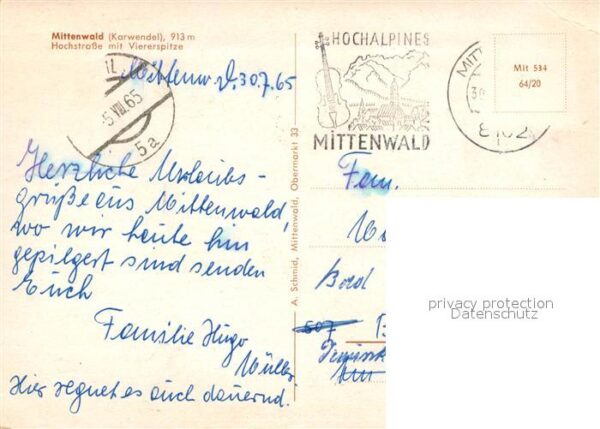 Mittenwald (Karwendel), 913 m
Hochstraße mit Viererspitze
Mittenw. d. 30.7.65
-5.VIII.65
5a
Herzliche Urlaubs-
grüße aus Mittenwald,
wo wir heute hin
gepilgert sind senden
Euch
Familie Hugo
Müller
Hier regnet es auch dauernd.
A. Schmid, Mittenwald, Obermarkt 33
HOCHALPINES
MITTENWALD
MITT
30
8102
Mit 534
64/20
Fam.
Bad
607
privacy protection
Datenschutz